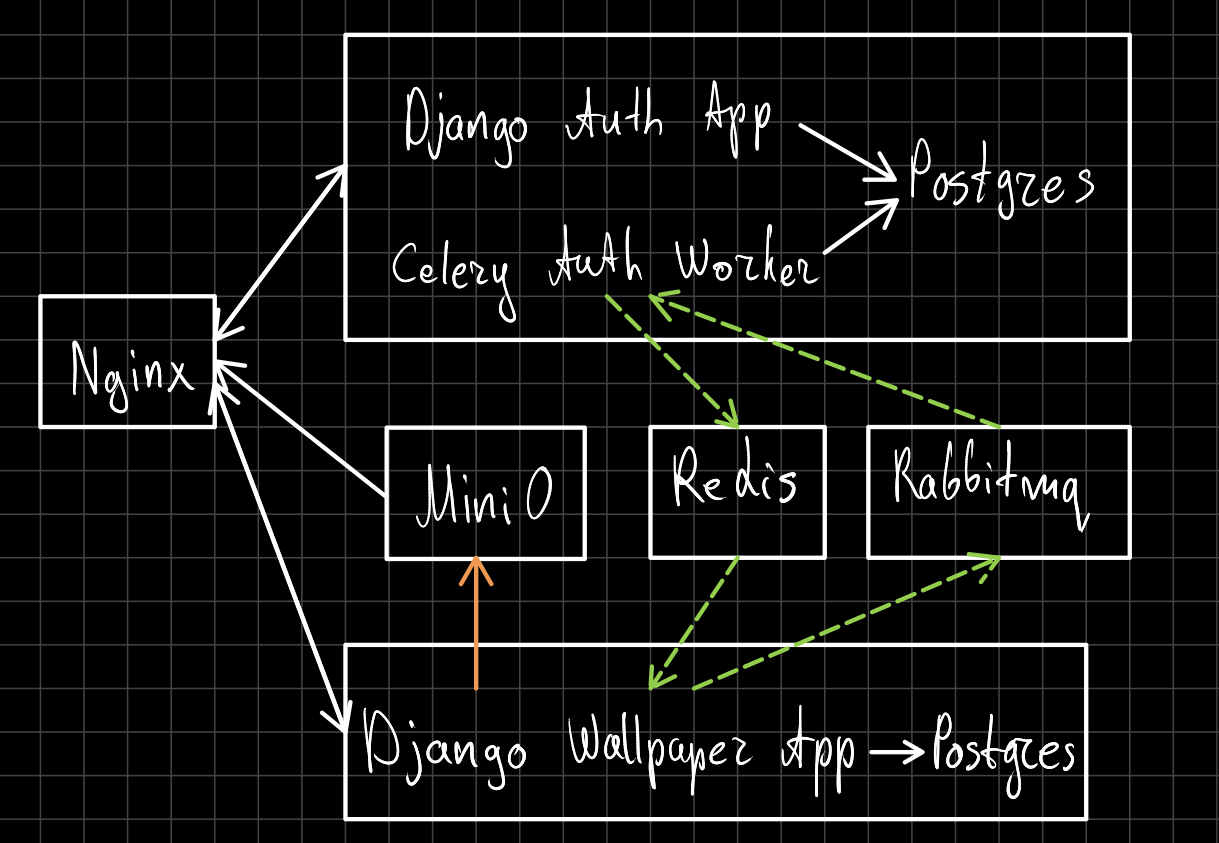 Django Auth App
Postgres
Celery Auth Worker
Nginx
MiniO
Redis
Rabbitmq
Django Wallpaper App
Postgres